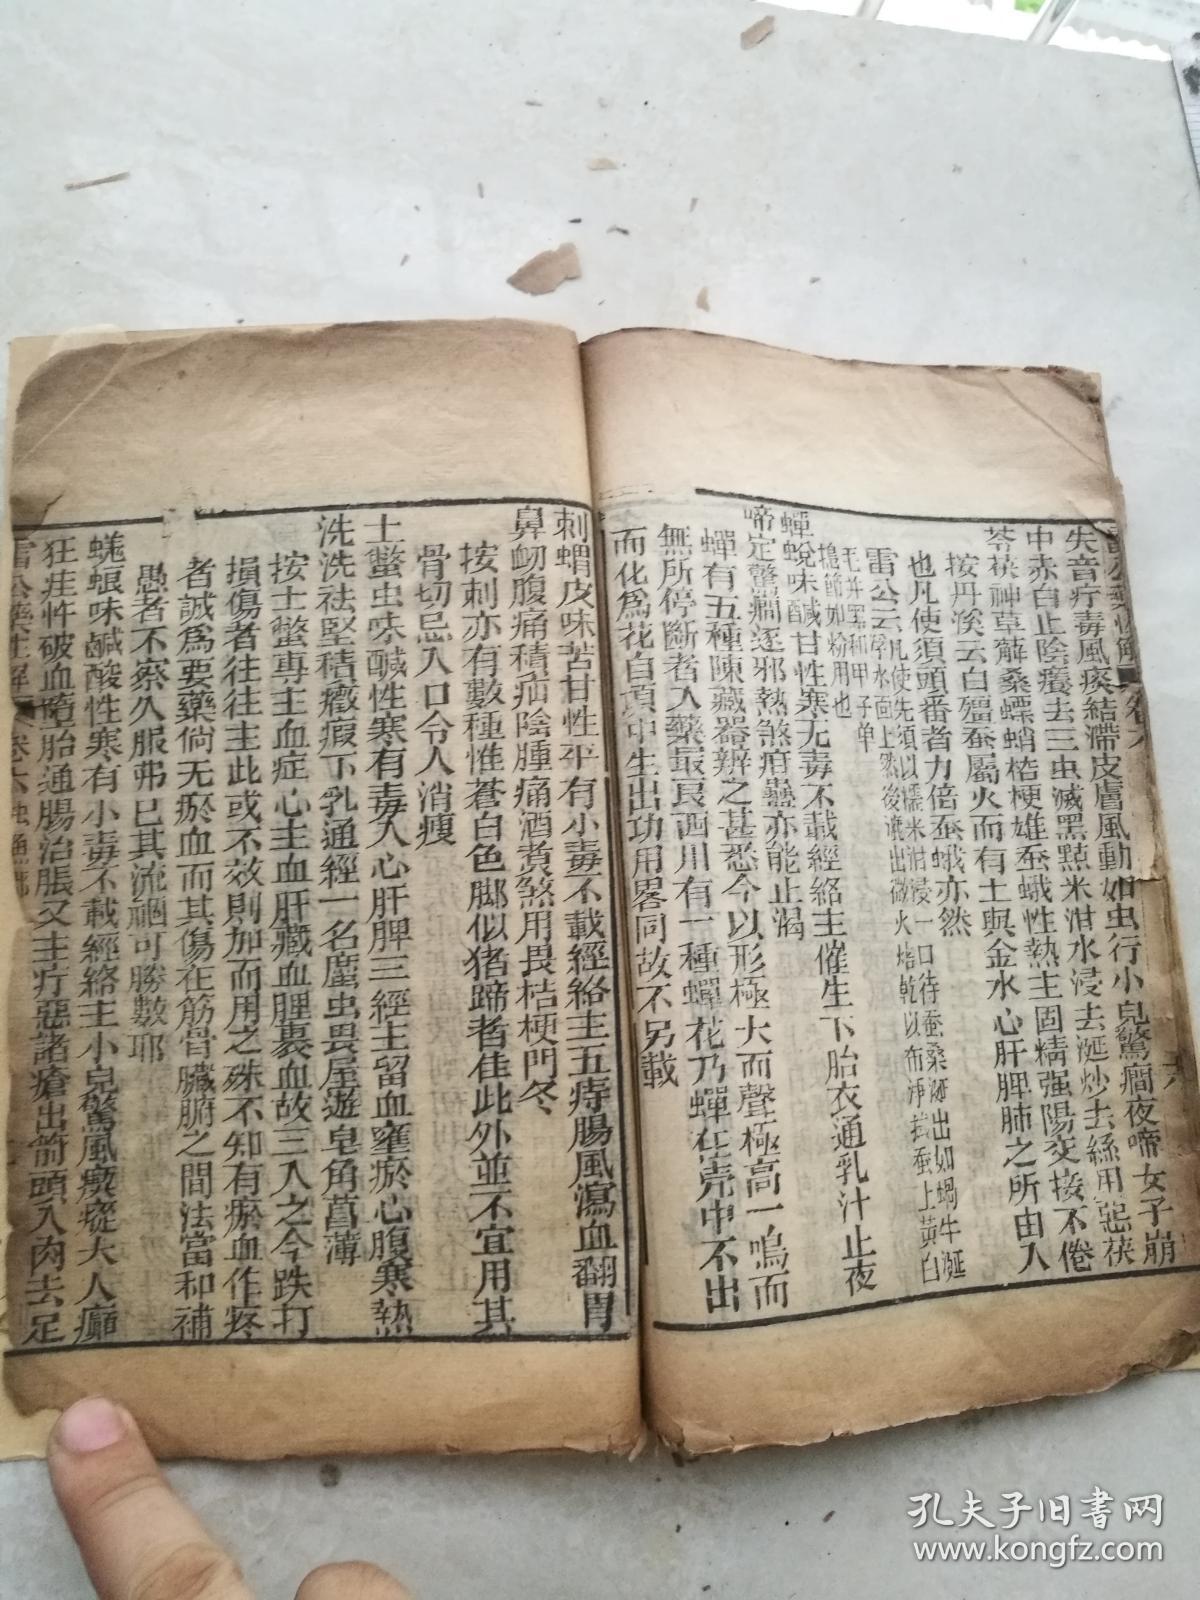 雷公藥性解 卷六
失音疔毒風痰結滯皮膚風動如虫行小兒驚癇夜啼女子崩
中赤白止陰癢去三虫滅黑㸃米泔水浸去涎炒去絲用惡茯
苓茯神草薢桑螵蛸桔梗雄蚕蛾性熱主固精强陽交接不倦
按丹溪云白殭蚕屬火而有土與金水心肝脾肺之所由入
也凡使須頭番者力倍蚕蛾亦然
雷公云凡使先須以糯米泔浸一日待蚕桑涎出如蝸牛涎
浮水面上然後漉出微火焙乾以布淨拭蚕上黄白
毛并黑和甲子单
搗篩如粉用也
蟬蛻味鹹甘性寒无毒不載經絡主催生下胎衣通乳汁止夜
啼定驚癇逐邪熱煞疳蠱亦能止渴
蟬有五種陳藏器辨之甚悉今以形極大而聲極高一鳴而
無所停斷者入藥最良西川有一種蟬花乃蟬在壳中不出
而化爲花自頂中生出功用畧同故不另載
刺蝟皮味苦甘性平有小毒不載經絡主五痔腸風瀉血翻胃
鼻衂腹痛積疝陰腫痛酒煑煞用畏桔梗門冬
按刺亦有數種惟蒼白色脚似猪蹄者佳此外並不宜用其
骨切忌入口令人消瘦
土鱉虫味鹹性寒有毒入心肝脾三經主留血壅瘀心腹寒熱
洗洗祛堅積癥瘕下乳通經一名䗪虫畏屋遊皂角菖蒲
按土鱉專主血症心主血肝藏血脾裹血故三入之今跌打
損傷者往往主此或不效則加而用之殊不知有瘀血作疼
者誠爲要藥倘无瘀血而其傷在筋骨臟腑之間法當和補
愚者不察久服弗已其流禍可勝數耶
蜣螂味鹹酸性寒有小毒不載經絡主小兒驚風瘈瘲大人癲
狂疰忤破血墮胎通腸治脹又主疔惡諸瘡出箭頭入肉去足
雷公藥性解 卷六 虫魚部
孔夫子旧书网
www.kongfz.com